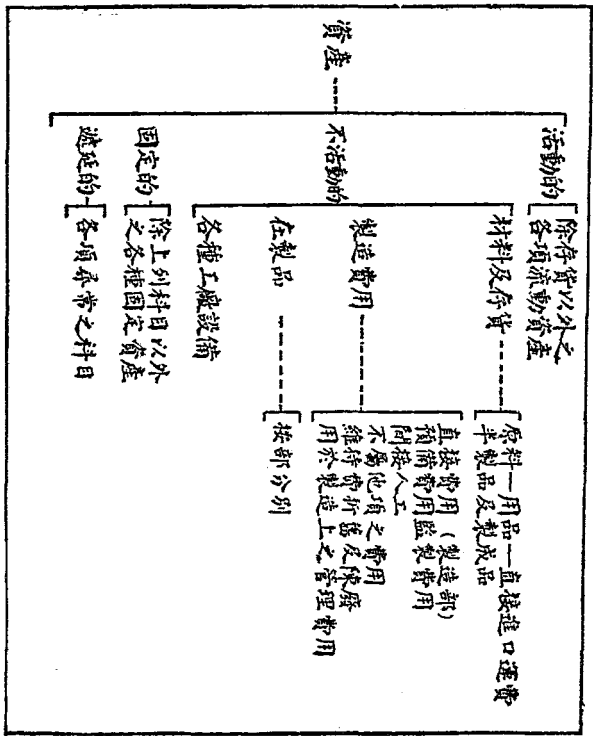 資產
活動的
除存貨以外之
各項流動資產
不活動的
材料及存貨
原料—用品—直接進口運費
半製品及製成品
製造費用
直接費用（製造部）
預備費用監製費用
間接人工
不屬他項之費用
維持費折舊及陳廢
用於製造上之管理費用
在製品
按部分別
各種工廠設備
固定的
除上列科目以外
之各種固定資產
遞延的
各項尋常之科目